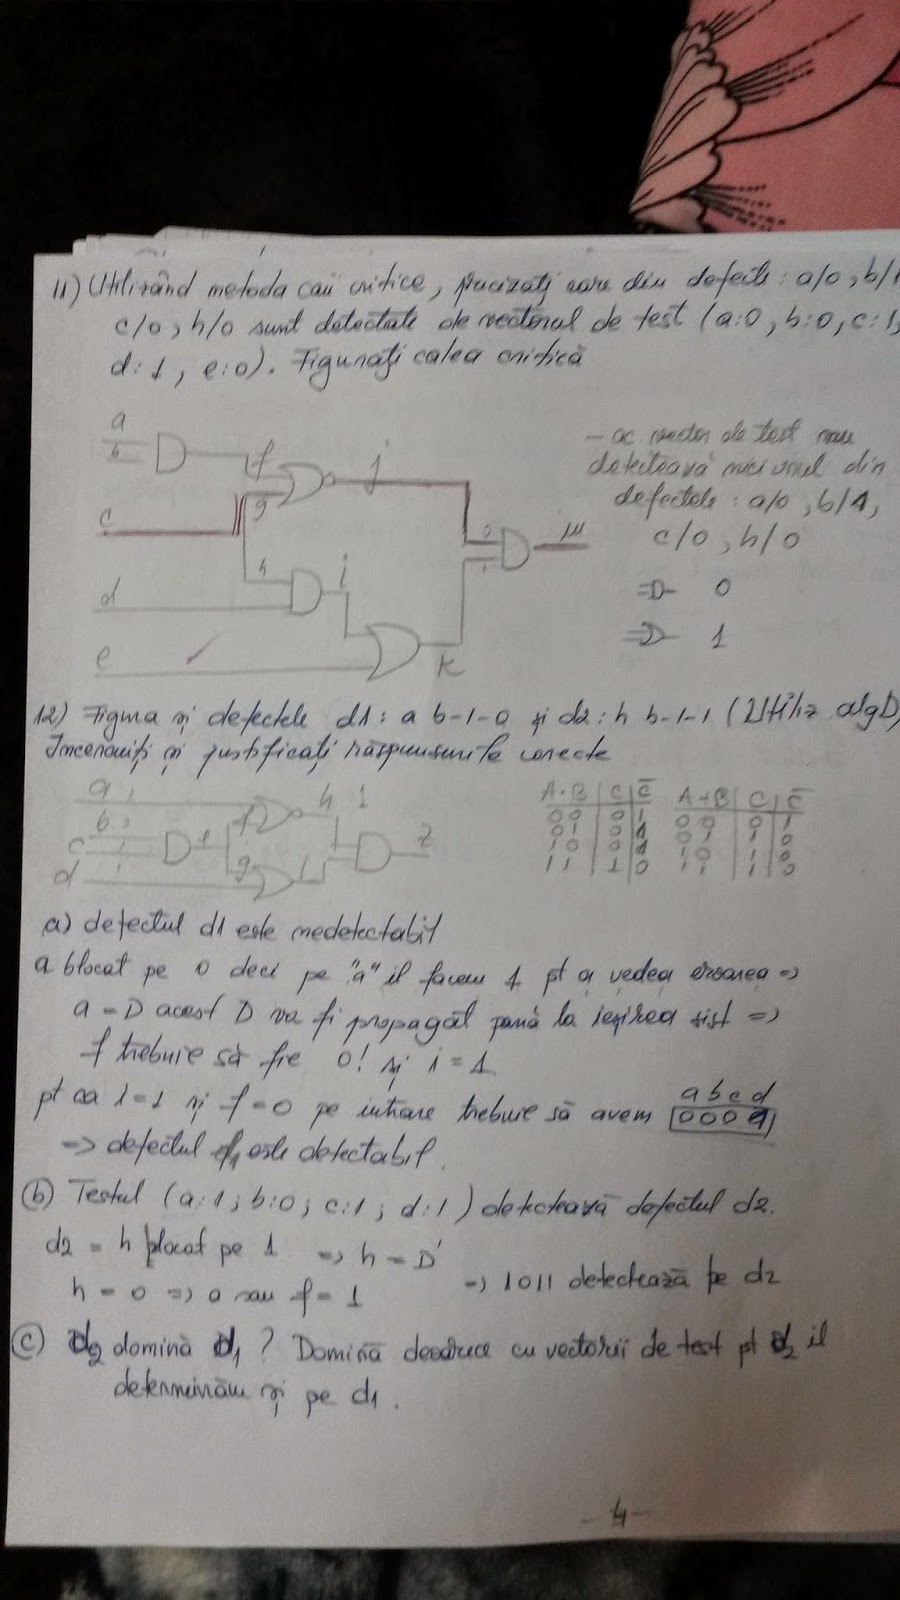 11) Utilizând metoda căii critice, precizați care din defecte: a/0, b/1
c/0, h/0 sunt detectate de vectorul de test (a:0, b:0, c:1,
d:1, e:0). Figurați calea critică
a
b
f
j
g
c
h
i
d
e
k
0
1
m
- ac. vector de test nu
detectează nici unul din
defectele: a/0, b/1,
c/0, h/0
0
1
12) Figura și defectele d1: a b-l-0 și d2: h b-l-1 (Utiliz. algD)
Încercuiți și justificați răspunsurile corecte
a 1
b 0
c 1
d 1
f
h 1
g
i
z
A·B | C | C̅
00 | 0 | 1
01 | 0 | 1
10 | 0 | 1
11 | 1 | 0
A+B | C | C̅
00 | 0 | 1
01 | 1 | 0
10 | 1 | 0
11 | 1 | 0
a) defectul d1 este nedetectabil
a blocat pe 0 deci pe "a" îl facem 1 pt a vedea eroarea =>
a = D acest D va fi propagat până la ieșirea sist =>
f trebuie să fie 0! și i = 1
pt ca i=1 și f=0 pe intrare trebuie să avem
a b c d
=> defectul d1 este detectabil.
(b) Testul (a:1; b:0; c:1; d:1) detectează defectul d2.
d2 = h blocat pe 1 => h = D'
h = 0 => a sau f = 1
=> 1011 detectează pe d2
(c) d2 domină d1? Domină deoarece cu vectorii de test pt d2 îl
determinăm și pe d1.
- 4 -